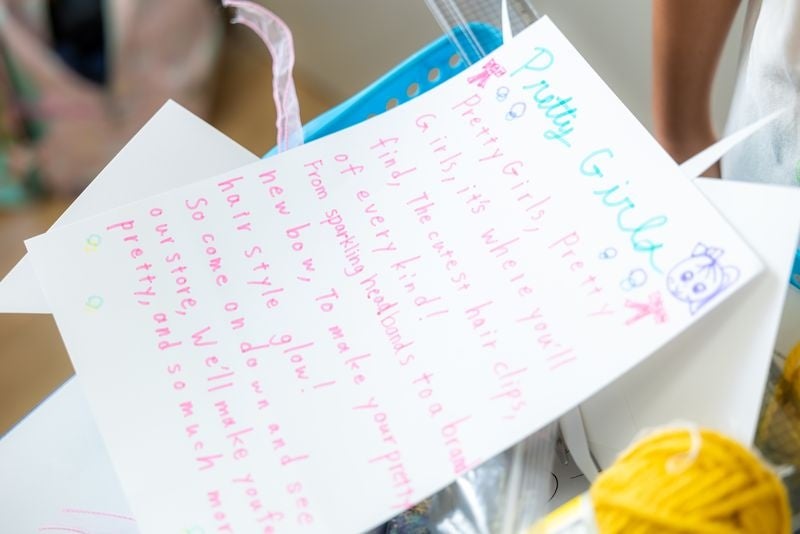 Pretty Girls
Pretty Girls, Pretty
Girls, it's where you'll
find, The cutest hair clips,
of every kind!
From sparkling headbands to a brand
new bow, To make your pretty
hair style glow!
So come on down and see
our store, We'll make you fe
pretty, and so much mor